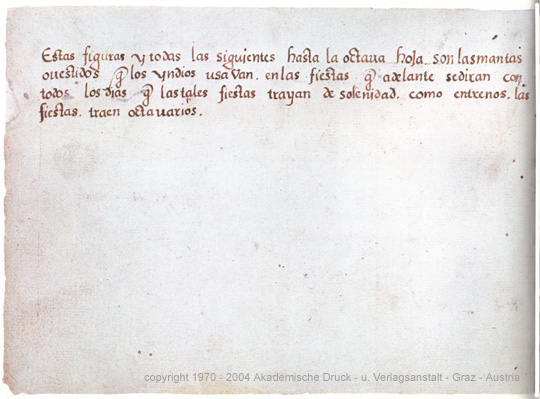 Estas figuras y todas las siguientes hasta la octaua hoja son las mantas
o uestidos q̃ los yndios usavan. en las fiestas q̃ adelante se diran con
todos los dias q̃ las tales fiestas trayan de solenidad. como entre nos. las
fiestas. traen octauarios.
copyright 1970 - 2004 Akademische Druck - u. Verlagsanstalt - Graz - Austria